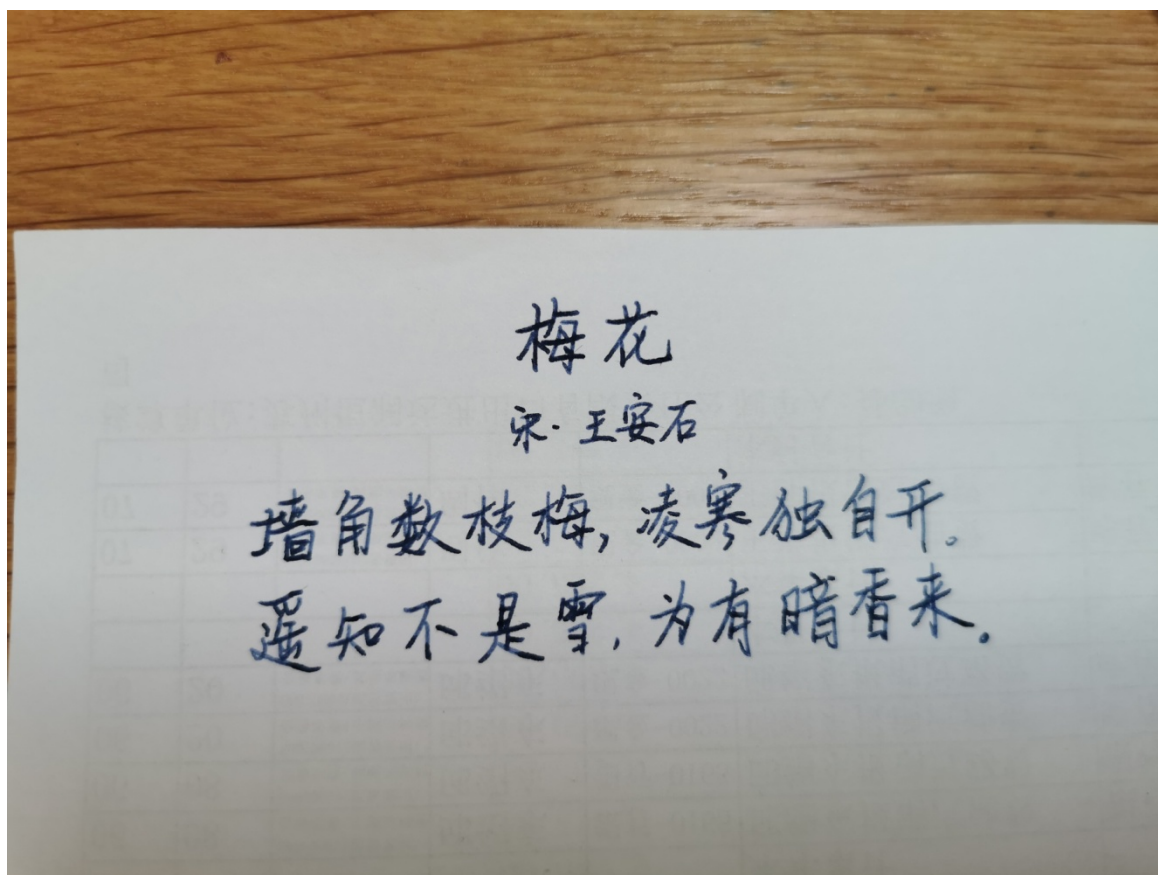 梅花
宋·王安石
墙角数枝梅,凌寒独自开。
遥知不是雪,为有暗香来。